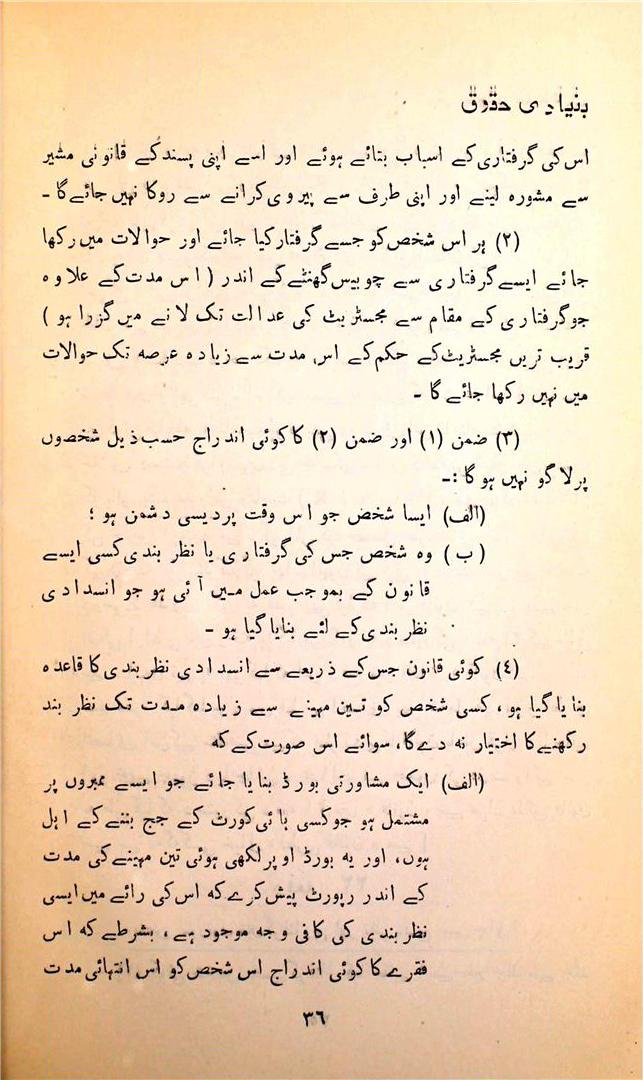 بنیادی حقوق
اس کی گرفتاری کے اسباب بتائے ہوئے اور اسے اپنی پسند کے قانونی مشیر
سے مشورہ لینے اور اپنی طرف سے پیروی کرانے سے روکا نہیں جائے گا ۔
(۲) ہر اس شخص کو جسے گرفتار کیا جائے اور حوالات میں رکھا
جائے ایسے گرفتاری سے چوبیس گھنٹے کے اندر ( اس مدت کے علاوہ
جو گرفتاری کے مقام سے مجسٹریٹ کی عدالت تک لانے میں گزرا ہو )
قریب تریں مجسٹریٹ کے حکم کے اس مدت سے زیادہ عرصہ تک حوالات
میں نہیں رکھا جائے گا ۔
(۳) ضمن (۱) اور ضمن (۲) کا کوئی اندراج حسب ذیل شخصوں
پر لاگو نہیں ہو گا :۔
(الف) ایسا شخص جو اس وقت پردیسی دشمن ہو ؛
(ب) وہ شخص جس کی گرفتاری یا نظر بندی کسی ایسے
قانون کے بموجب عمل میں آئی ہو جو انسدادی
نظر بندی کے لئے بنایا گیا ہو ۔
(٤) کوئی قانون جس کے ذریعے سے انسدادی نظر بندی کا قاعدہ
بنایا گیا ہو ، کسی شخص کو تین مہینے سے زیادہ مدت تک نظر بند
رکھنے کا اختیار نہ دے گا، سوائے اس صورت کے کہ
(الف) ایک مشاورتی بورڈ بنایا جائے جو ایسے ممبروں پر
مشتمل ہو جو کسی ہائی کورٹ کے جج بننے کے اہل
ہوں، اور یہ بورڈ اوپر لکھی ہوئی تین مہینے کی مدت
کے اندر رپورٹ پیش کرے کہ اس کی رائے میں ایسی
نظر بندی کی کافی وجہ موجود ہے ، بشرطے کہ اس
فقرے کا کوئی اندراج اس شخص کو اس انتہائی مدت
۳٦